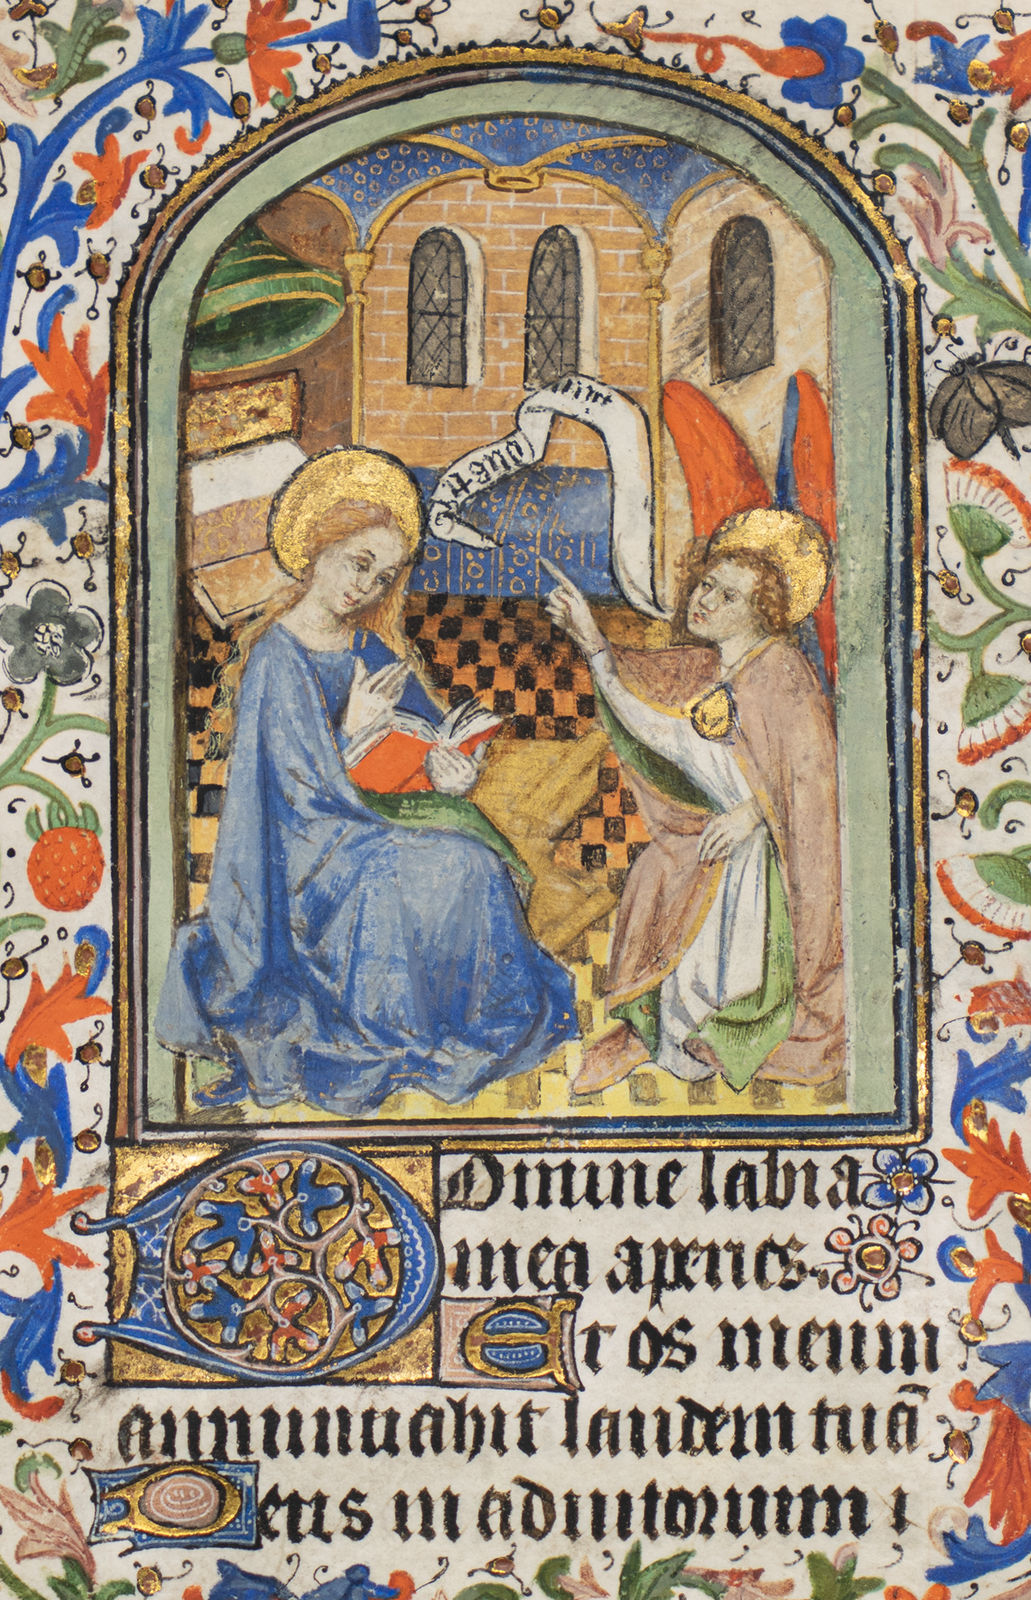 Domine labia
mea aperies
Et os meum
annunciabit laudem tuā
Deus in adiutorium i